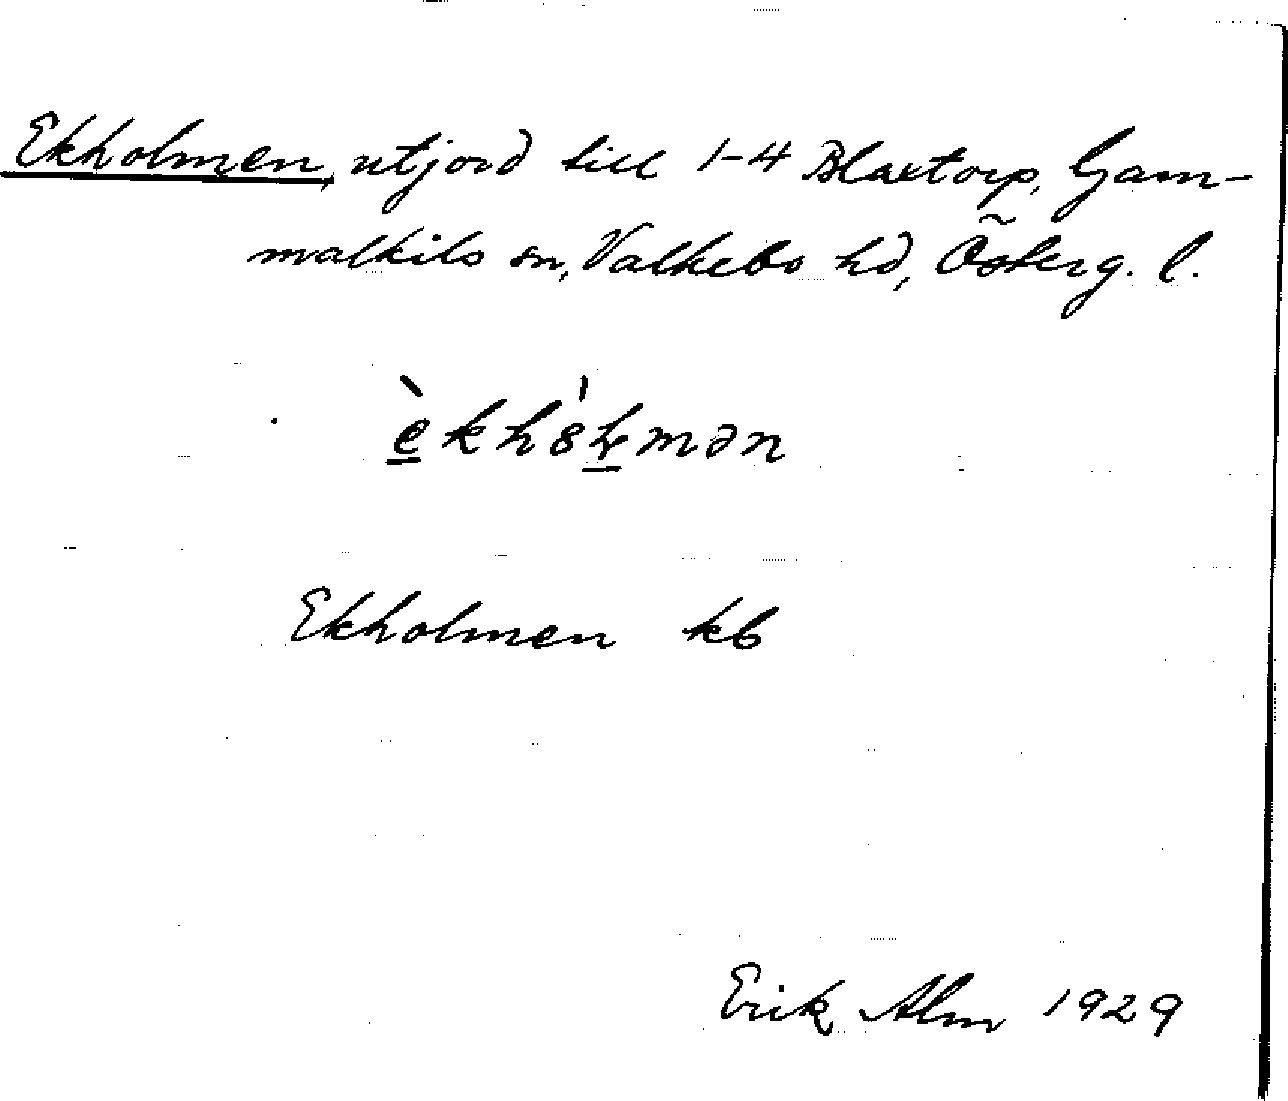 Ekholmen, utjord till 1-4 Blaxtorp, Gam-
malkils sn, Valkebo hd, Österg. l.
Ekholmen kb
Erik Alm 1929